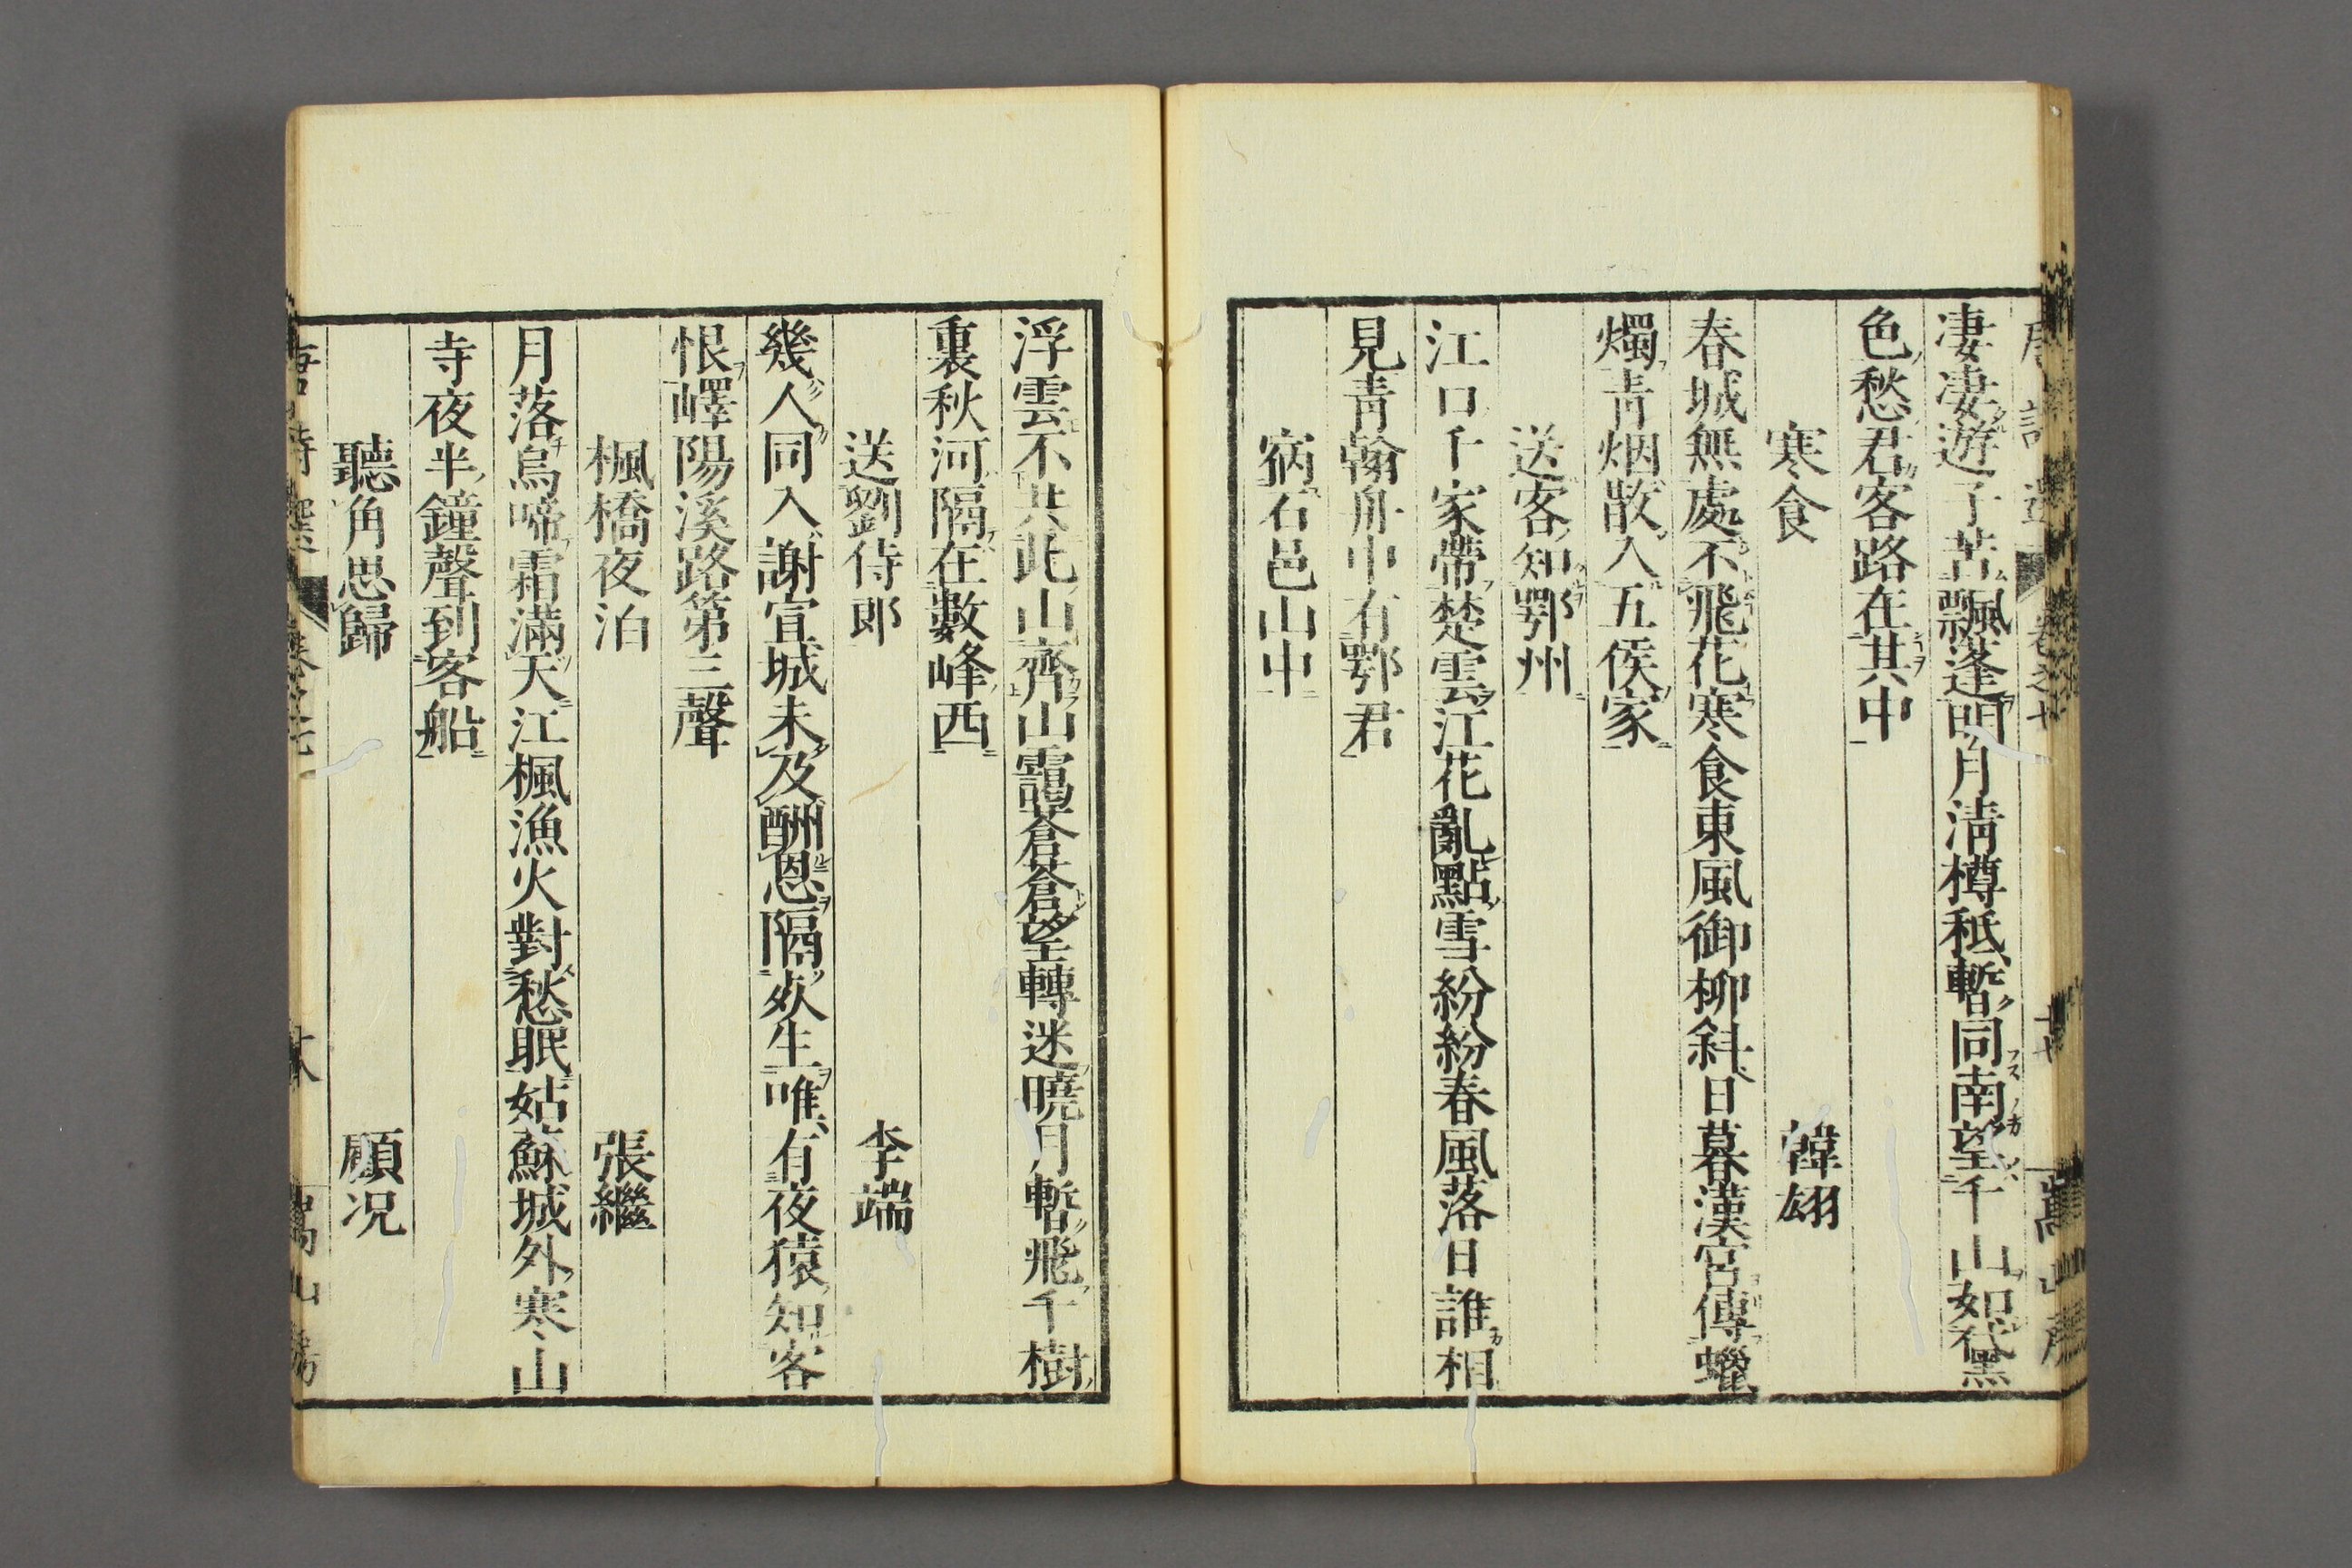 凄凄遊子苦飄蓬明月清樽秪暫同南望千山如黛
色愁君客路在其中
寒食 韓翃
春城無處不飛花寒食東風御柳斜日暮漢宮傳蠟
燭青烟散入五侯家
送客知鄂州
江口千家帶楚雲江花亂點雪紛紛春風落日誰相
見青翰舟中有鄂君
宿石邑山中
浮雲不共此山齊山靄蒼蒼望轉迷曉月暫飛千樹
裏秋河隔在數峰西
送劉侍郎 李端
幾人同入謝宣城未及酬恩隔死生唯有夜猿知客
恨嶧陽溪路第三聲
楓橋夜泊 張繼
月落烏啼霜滿天江楓漁火對愁眠姑蘇城外寒山
寺夜半鐘聲到客船
聽角思歸 顧况